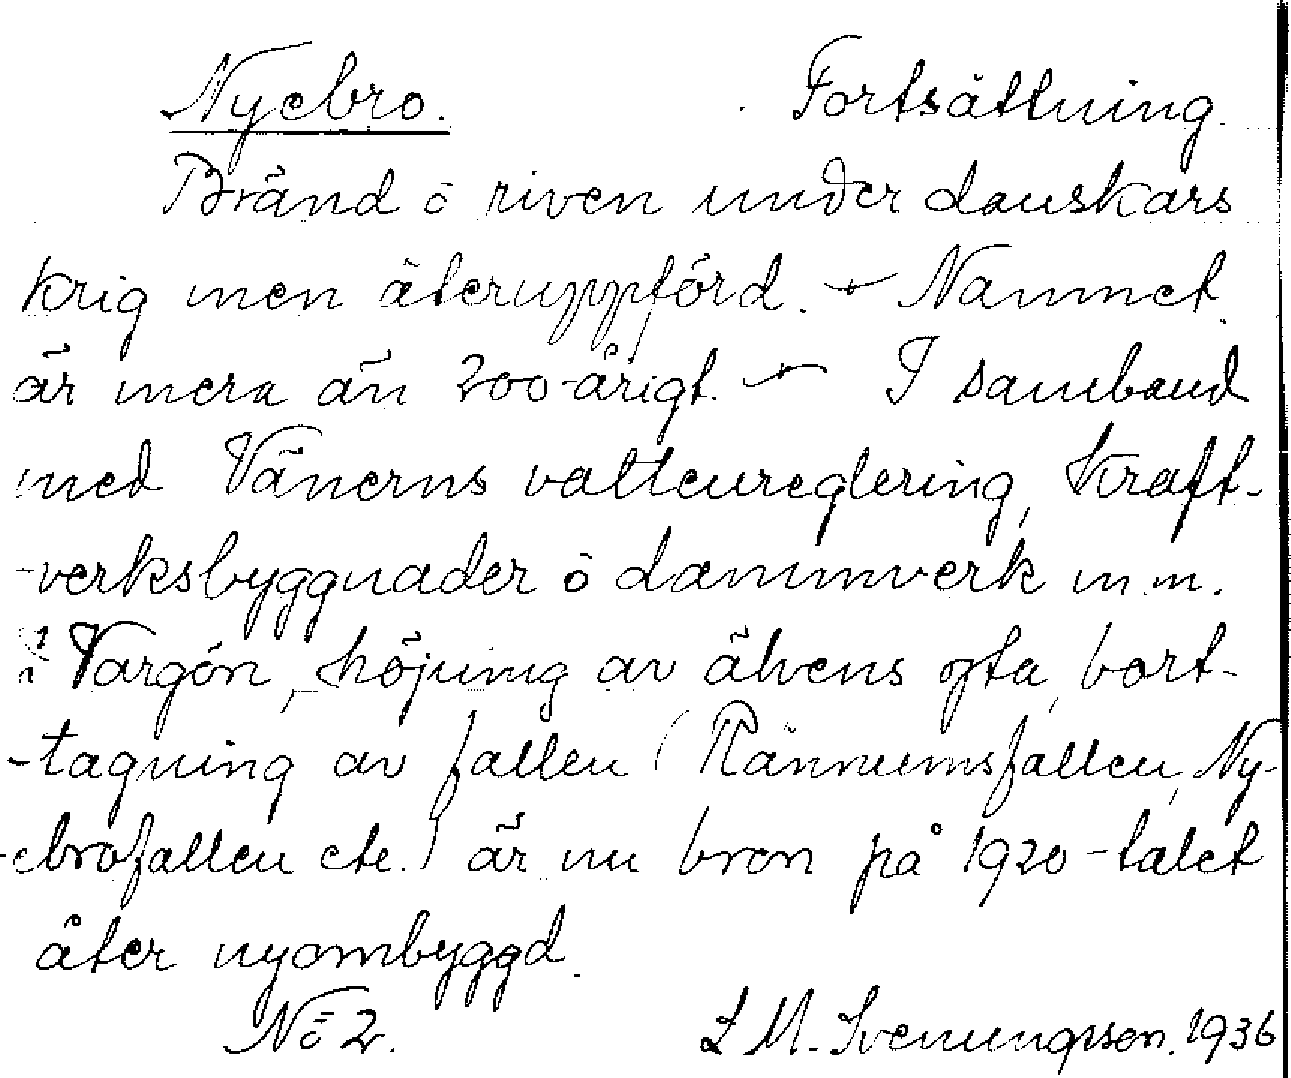 Nyebro. Fortsättning.
Bränd ö riven under danskars
krig men återuppförd. - Namnet
är mera än 200-årigt. - I samband
med Vänerns vattenreglering, kraft-
-verksbyggnader ö dammverk m.m.
i Vargön, höjning av älvens ofta, bort-
-tagning av fallen (Rännumsfallen, Ny-
-ebrofallen etc.) är nu bron på 1920-talet
åter nyombyggd.
No 2. L M. Svenungsson. 1936